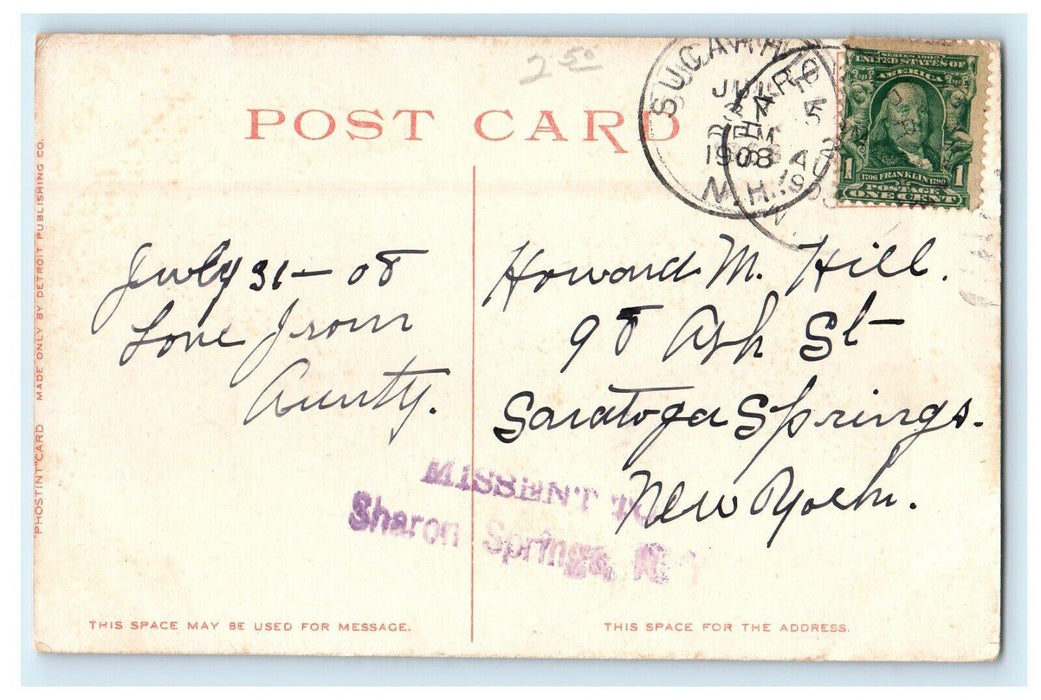 2 50
POST CARD
JUL
1908
N.H.
SERIES 1902
UNITED STATES OF
AMERICA
1 1
1706 FRANKLIN 1790
POSTAGE
ONE CENT
PHOSTINT CARD MADE ONLY BY DETROIT PUBLISHING CO.
July 31 - 08
Love from
Aunty.
Howard M. Hill.
98 Ash St
Saratoga Springs.
New York.
MISSENT TO
Sharon Springs, N.Y
THIS SPACE MAY BE USED FOR MESSAGE.
THIS SPACE FOR THE ADDRESS.